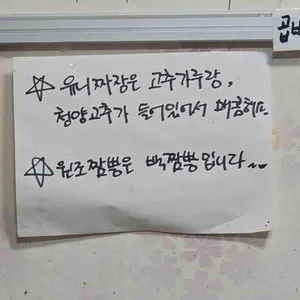 곱빼
☆ 유니짜장은 고추가루랑,
청양고추가 들어있어서 매콤해요.
☆ 원조짬뽕은 백짬뽕입니다~